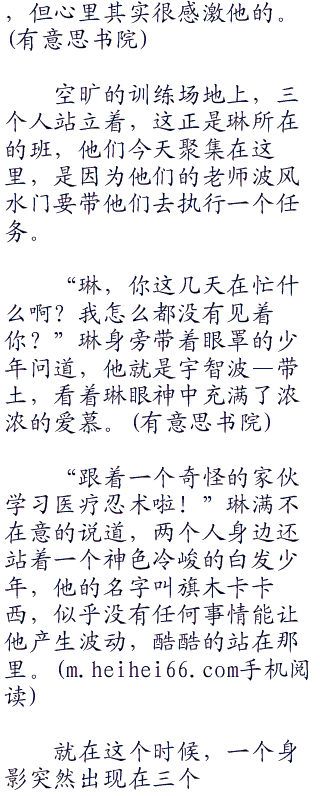 ，但心里其实很感激他的。
(有意思书院)
空旷的训练场地上，三
个人站立着，这正是琳所在
的班，他们今天聚集在这
里，是因为他们的老师波风
水门要带他们去执行一个任
务。
“琳，你这几天在忙什
么啊？我怎么都没有见着
你？”琳身旁带着眼罩的少
年问道，他就是宇智波—带
土，看着琳眼神中充满了浓
浓的爱慕。(有意思书院)
“跟着一个奇怪的家伙
学习医疗忍术啦！”琳满不
在意的说道，两个人身边还
站着一个神色冷峻的白发少
年，他的名字叫旗木卡卡
西，似乎没有任何事情能让
他产生波动，酷酷的站在那
里。(m.heihei66.com手机阅
读)
就在这个时候，一个身
影突然出现在三个